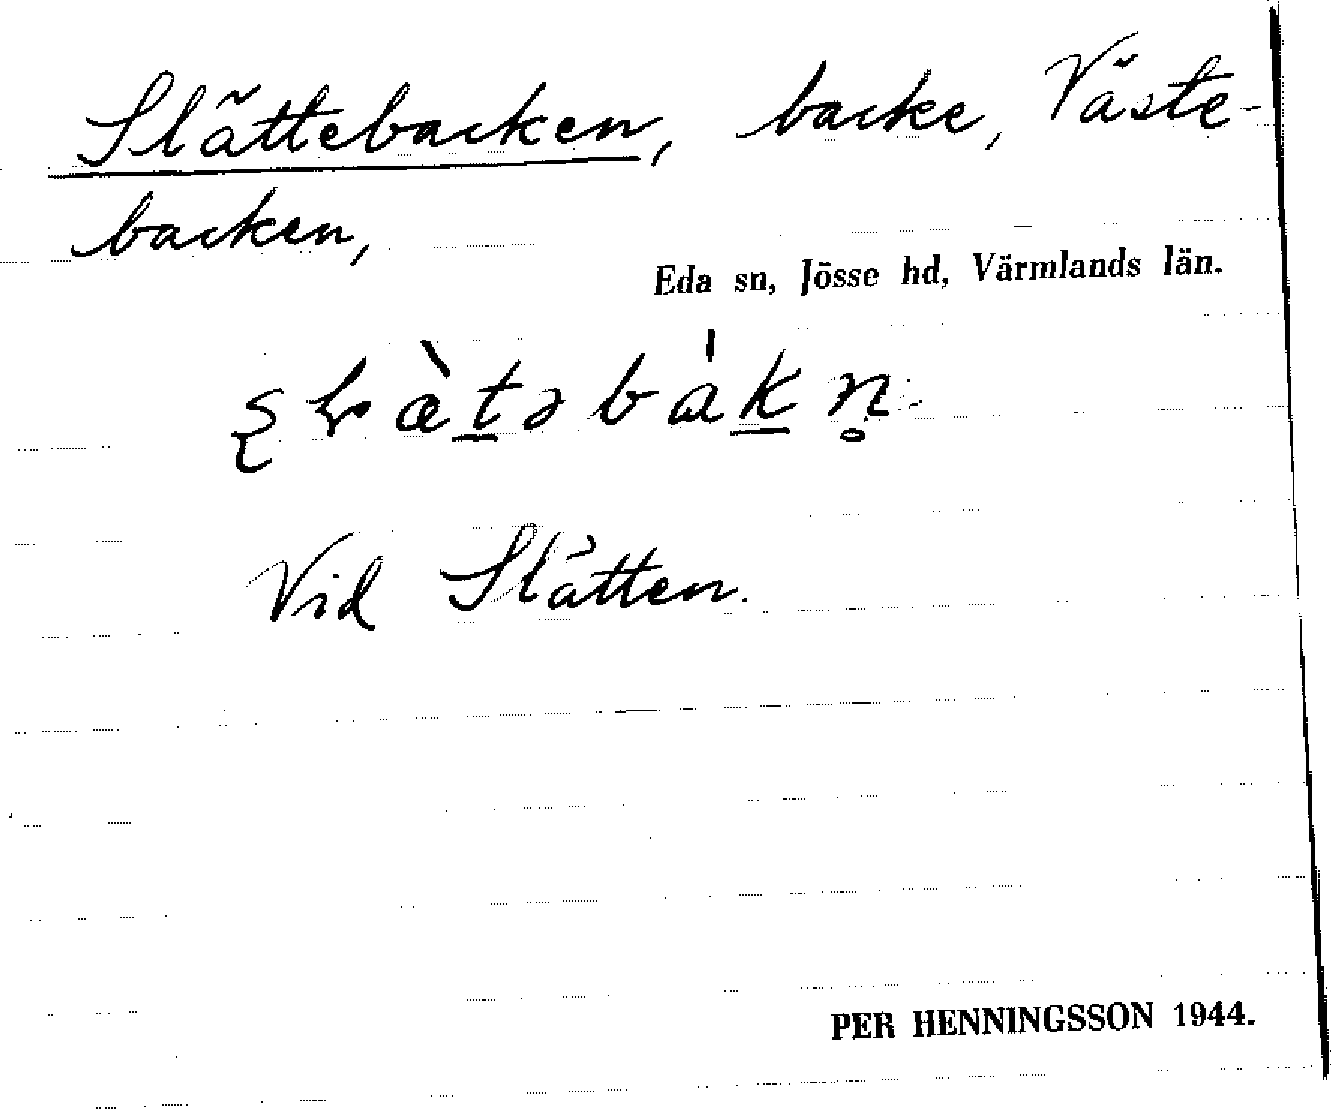 Slättebacken, backe, Väste-
backen,
Eda sn, Jösse hd, Värmlands län.
Vid Slätten.
PER HENNINGSSON 1944.